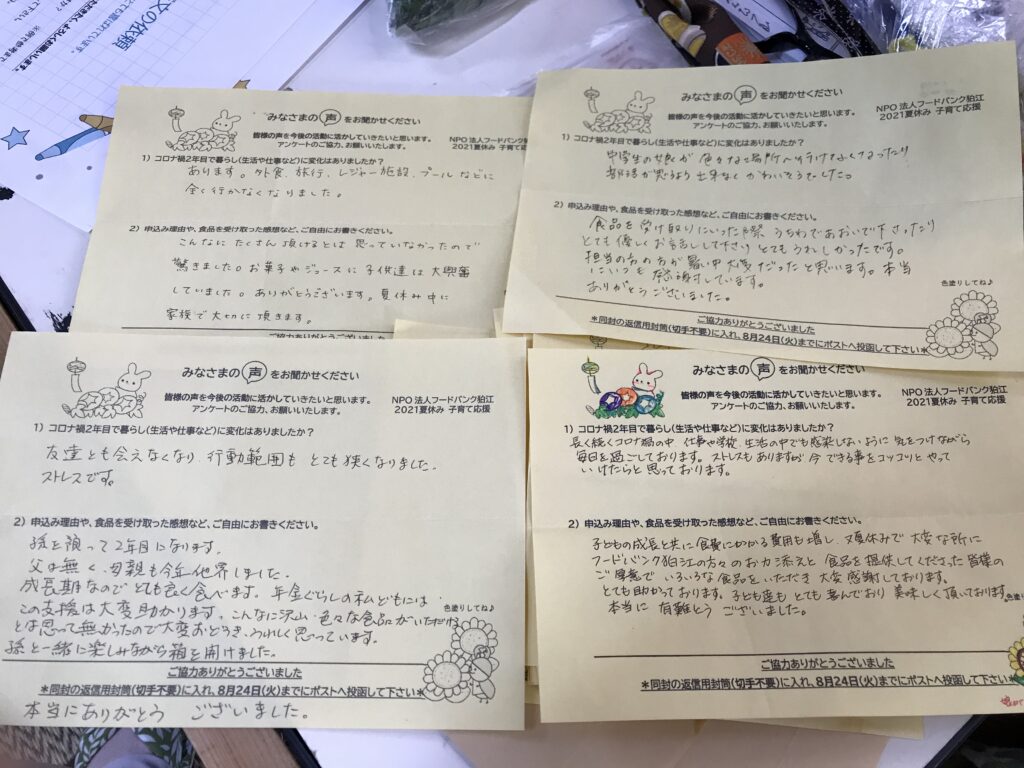 文の依頼
みなさまの声をお聞かせください
皆様の声を今後の活動に活かしていきたいと思います。
アンケートのご協力、お願いいたします。
NPO 法人フードバンク狛江
2021夏休み 子育て応援
1）コロナ禍2年目で暮らし(生活や仕事など)に変化はありましたか？
あります。外食、旅行、レジャー施設、プールなどに
全く行かなくなりました。
2）申込み理由や、食品を受け取った感想など、ご自由にお書きください。
こんなにたくさん頂けるとは思っていなかったので
驚きました。お菓子やジュースに子供達は大興奮
していました。ありがとうございます。夏休み中に
家族で大切に頂きます。
ご協力ありがとうございました
みなさまの声をお聞かせください
皆様の声を今後の活動に活かしていきたいと思います。
アンケートのご協力、お願いいたします。
NPO 法人フードバンク狛江
2021夏休み 子育て応援
1）コロナ禍2年目で暮らし(生活や仕事など)に変化はありましたか？
中学生の娘が色々な場所へ行けなくなったり
部活が思うよう出来なくかわいそうでした。
2）申込み理由や、食品を受け取った感想など、ご自由にお書きください。
食品を受け取りにいった際、うちわであおいで下さったり
とても優しくお話しして下さりとてもうれしかったです。
担当の方の方が暑い中大変だったと思います。本当
にいつも感謝しています。
ありがとうございました。
色塗りしてね♪
ご協力ありがとうございました
＊同封の返信用封筒(切手不要)に入れ、8月24日(火)までにポストへ投函して下さい＊
みなさまの声をお聞かせください
皆様の声を今後の活動に活かしていきたいと思います。
アンケートのご協力、お願いいたします。
NPO 法人フードバンク狛江
2021夏休み 子育て応援
1）コロナ禍2年目で暮らし(生活や仕事など)に変化はありましたか？
友達とも会えなくなり、行動範囲もとても狭くなりました。
ストレスです。
2）申込み理由や、食品を受け取った感想など、ご自由にお書きください。
孫を預って2年目になります。
父は無く、母親も今年他界しました。
成長期なのでとても良く食べます。年金ぐらしの私どもには
この支援は大変助かります。こんなに沢山色々な食品がいただける
とは思って無かったので大変おどろき、うれしく思っています。
孫と一緒に楽しみながら箱を開けました。
色塗りしてね♪
ご協力ありがとうございました
＊同封の返信用封筒(切手不要)に入れ、8月24日(火)までにポストへ投函して下さい＊
本当にありがとう ございました。
みなさまの声をお聞かせください
皆様の声を今後の活動に活かしていきたいと思います。
アンケートのご協力、お願いいたします。
NPO 法人フードバンク狛江
2021夏休み 子育て応援
1）コロナ禍2年目で暮らし(生活や仕事など)に変化はありましたか？
長く続くコロナ禍の中、仕事や学校、生活の中でも感染しないように気をつけながら
毎日を過ごしております。ストレスもありますが今できる事をコツコツとやって
いけたらと思っております。
2）申込み理由や、食品を受け取った感想など、ご自由にお書きください。
子どもの成長と共に食費にかかる費用も増し、又夏休みで大変な所に
フードバンク狛江の方々のお力添えと食品を提供してくださった皆様の
ご厚意でいろいろな食品をいただき大変感謝しております。
とても助かっております。子ども達もとても喜んでおり美味しく頂いております。
本当に有難とうございました。
色塗り
ご協力ありがとうございました
＊同封の返信用封筒(切手不要)に入れ、8月24日(火)までにポストへ投函して下さい＊